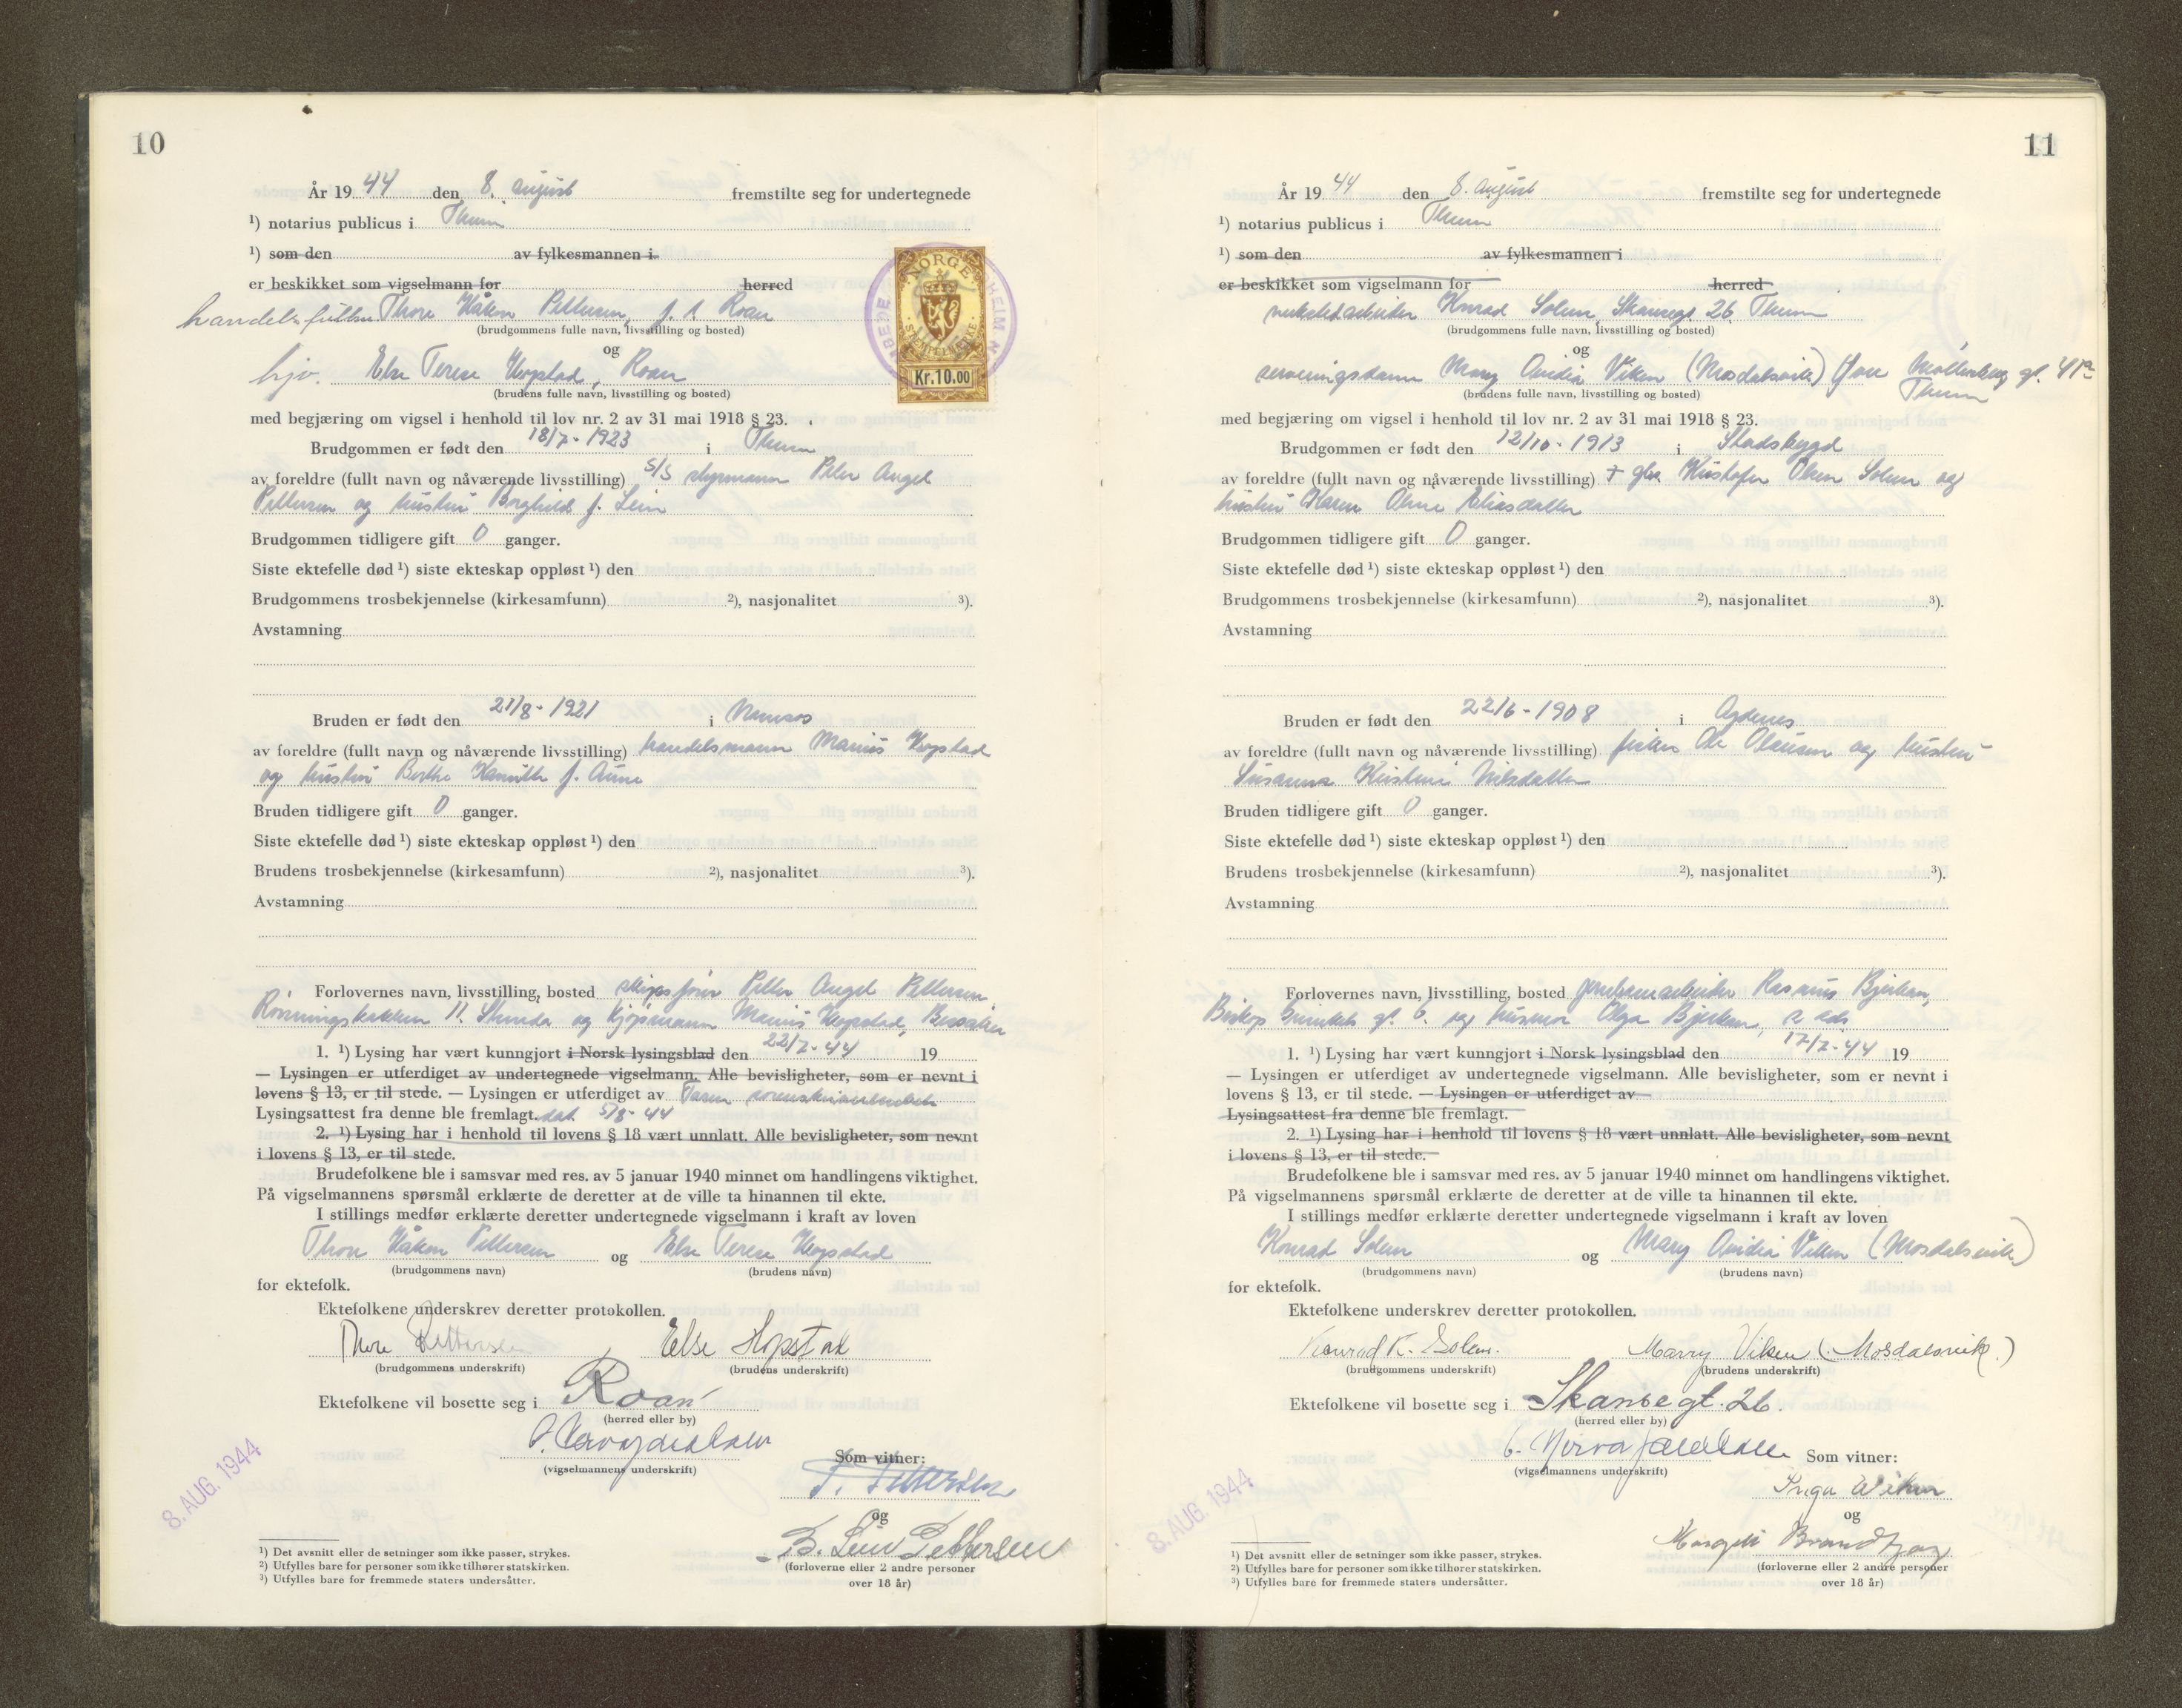 10
År 19 44 den 8. august fremstilte seg for undertegnede
¹) notarius publicus i Thum
¹) som den av fylkesmannen i
er beskikket som vigselmann for herred
Thore Håkon Pettersen, Roan
(brudgommens fulle navn, livsstilling og bosted)
og
Else Terese Hopstad, Roan
(brudens fulle navn, livsstilling og bosted)
NORGE
STEMPELMERKE
Kr.10.00
med begjæring om vigsel i henhold til lov nr. 2 av 31 mai 1918 § 23.
Brudgommen er født den 18/7-1923 i Thum
av foreldre (fullt navn og nåværende livsstilling) S/S styrmann Peter Angel
Pettersen og hustru Borghild f. Lein
Brudgommen tidligere gift 0 ganger.
Siste ektefelle død ¹) siste ekteskap oppløst ¹) den
Brudgommens trosbekjennelse (kirkesamfunn) ²), nasjonalitet ³).
Avstamning
Bruden er født den 21/8-1921 i Namsos
av foreldre (fullt navn og nåværende livsstilling) handelsmann Marius Hopstad
og hustru Berthe f. Aune
Bruden tidligere gift 0 ganger.
Siste ektefelle død ¹) siste ekteskap oppløst ¹) den
Brudens trosbekjennelse (kirkesamfunn) ²), nasjonalitet ³).
Avstamning
Forlovernes navn, livsstilling, bosted skipsfører Petter Angel Pettersen,
11. Strinda og kjøpmann Marius Hopstad, Bessaker
1. ¹) Lysing har vært kunngjort i Norsk lysingsblad den 22/7-44 19
— Lysingen er utferdiget av undertegnede vigselmann. Alle bevisligheter, som er nevnt i
lovens § 13, er til stede. — Lysingen er utferdiget av
Lysingsattest fra denne ble fremlagt. dat. 5/8-44
2. ¹) Lysing har i henhold til lovens § 18 vært unnlatt. Alle bevisligheter, som nevnt
i lovens § 13, er til stede.
Brudefolkene ble i samsvar med res. av 5 januar 1940 minnet om handlingens viktighet.
På vigselmannens spørsmål erklærte de deretter at de ville ta hinannen til ekte.
I stillings medfør erklærte deretter undertegnede vigselmann i kraft av loven
Thore Håkon Pettersen og Else Terese Hopstad
(brudgommens navn) (brudens navn)
for ektefolk.
Ektefolkene underskrev deretter protokollen.
Thore Pettersen Else Hopstad
(brudgommens underskrift) (brudens underskrift)
Ektefolkene vil bosette seg i Roan
(herred eller by)
(vigselmannens underskrift)
Som vitner:
P. Pettersen
og
B. Lein Pettersen
(forloverne eller 2 andre personer
over 18 år)
8. AUG. 1944
¹) Det avsnitt eller de setninger som ikke passer, strykes.
²) Utfylles bare for personer som ikke tilhører statskirken.
³) Utfylles bare for fremmede staters undersåtter.
11
År 19 44 den 8. august fremstilte seg for undertegnede
¹) notarius publicus i Thum
¹) som den av fylkesmannen i
er beskikket som vigselmann for herred
verkstedarbeider Konrad Solem, Skanseg. 26, Thum
(brudgommens fulle navn, livsstilling og bosted)
og
serveringsdame Mary Ovidia Viken (Mosdalsvik) Øvre Møllenberg gt. 41
Thum
(brudens fulle navn, livsstilling og bosted)
med begjæring om vigsel i henhold til lov nr. 2 av 31 mai 1918 § 23.
Brudgommen er født den 12/10-1913 i Stadsbygd
av foreldre (fullt navn og nåværende livsstilling) Kristofer Olsen Solem og
hustru Karen Anne Eliasdatter
Brudgommen tidligere gift 0 ganger.
Siste ektefelle død ¹) siste ekteskap oppløst ¹) den
Brudgommens trosbekjennelse (kirkesamfunn) ²), nasjonalitet ³).
Avstamning
Bruden er født den 22/6-1908 i Agdenes
av foreldre (fullt navn og nåværende livsstilling) fisker Ole Olausen og hustru
Susanna Kristine Nilsdatter
Bruden tidligere gift 0 ganger.
Siste ektefelle død ¹) siste ekteskap oppløst ¹) den
Brudens trosbekjennelse (kirkesamfunn) ²), nasjonalitet ³).
Avstamning
Forlovernes navn, livsstilling, bosted jernbanearbeider Rasmus Bjerkan,
Biskop gt. 6. og husmor Olga Bjerkan,
1. ¹) Lysing har vært kunngjort i Norsk lysingsblad den 17/7-44 19
— Lysingen er utferdiget av undertegnede vigselmann. Alle bevisligheter, som er nevnt i
lovens § 13, er til stede. — Lysingen er utferdiget av
Lysingsattest fra denne ble fremlagt.
2. ¹) Lysing har i henhold til lovens § 18 vært unnlatt. Alle bevisligheter, som nevnt
i lovens § 13, er til stede.
Brudefolkene ble i samsvar med res. av 5 januar 1940 minnet om handlingens viktighet.
På vigselmannens spørsmål erklærte de deretter at de ville ta hinannen til ekte.
I stillings medfør erklærte deretter undertegnede vigselmann i kraft av loven
Konrad Solem og Mary Ovidia Viken (Mosdalsvik)
(brudgommens navn) (brudens navn)
for ektefolk.
Ektefolkene underskrev deretter protokollen.
Konrad K. Solem. Marry Viken (Mosdalsvik.)
(brudgommens underskrift) (brudens underskrift)
Ektefolkene vil bosette seg i Skansegt. 26.
(herred eller by)
(vigselmannens underskrift)
Som vitner:
Inga Wiken
og
Margit
(forloverne eller 2 andre personer
over 18 år)
8. AUG. 1944
¹) Det avsnitt eller de setninger som ikke passer, strykes.
²) Utfylles bare for personer som ikke tilhører statskirken.
³) Utfylles bare for fremmede staters undersåtter.